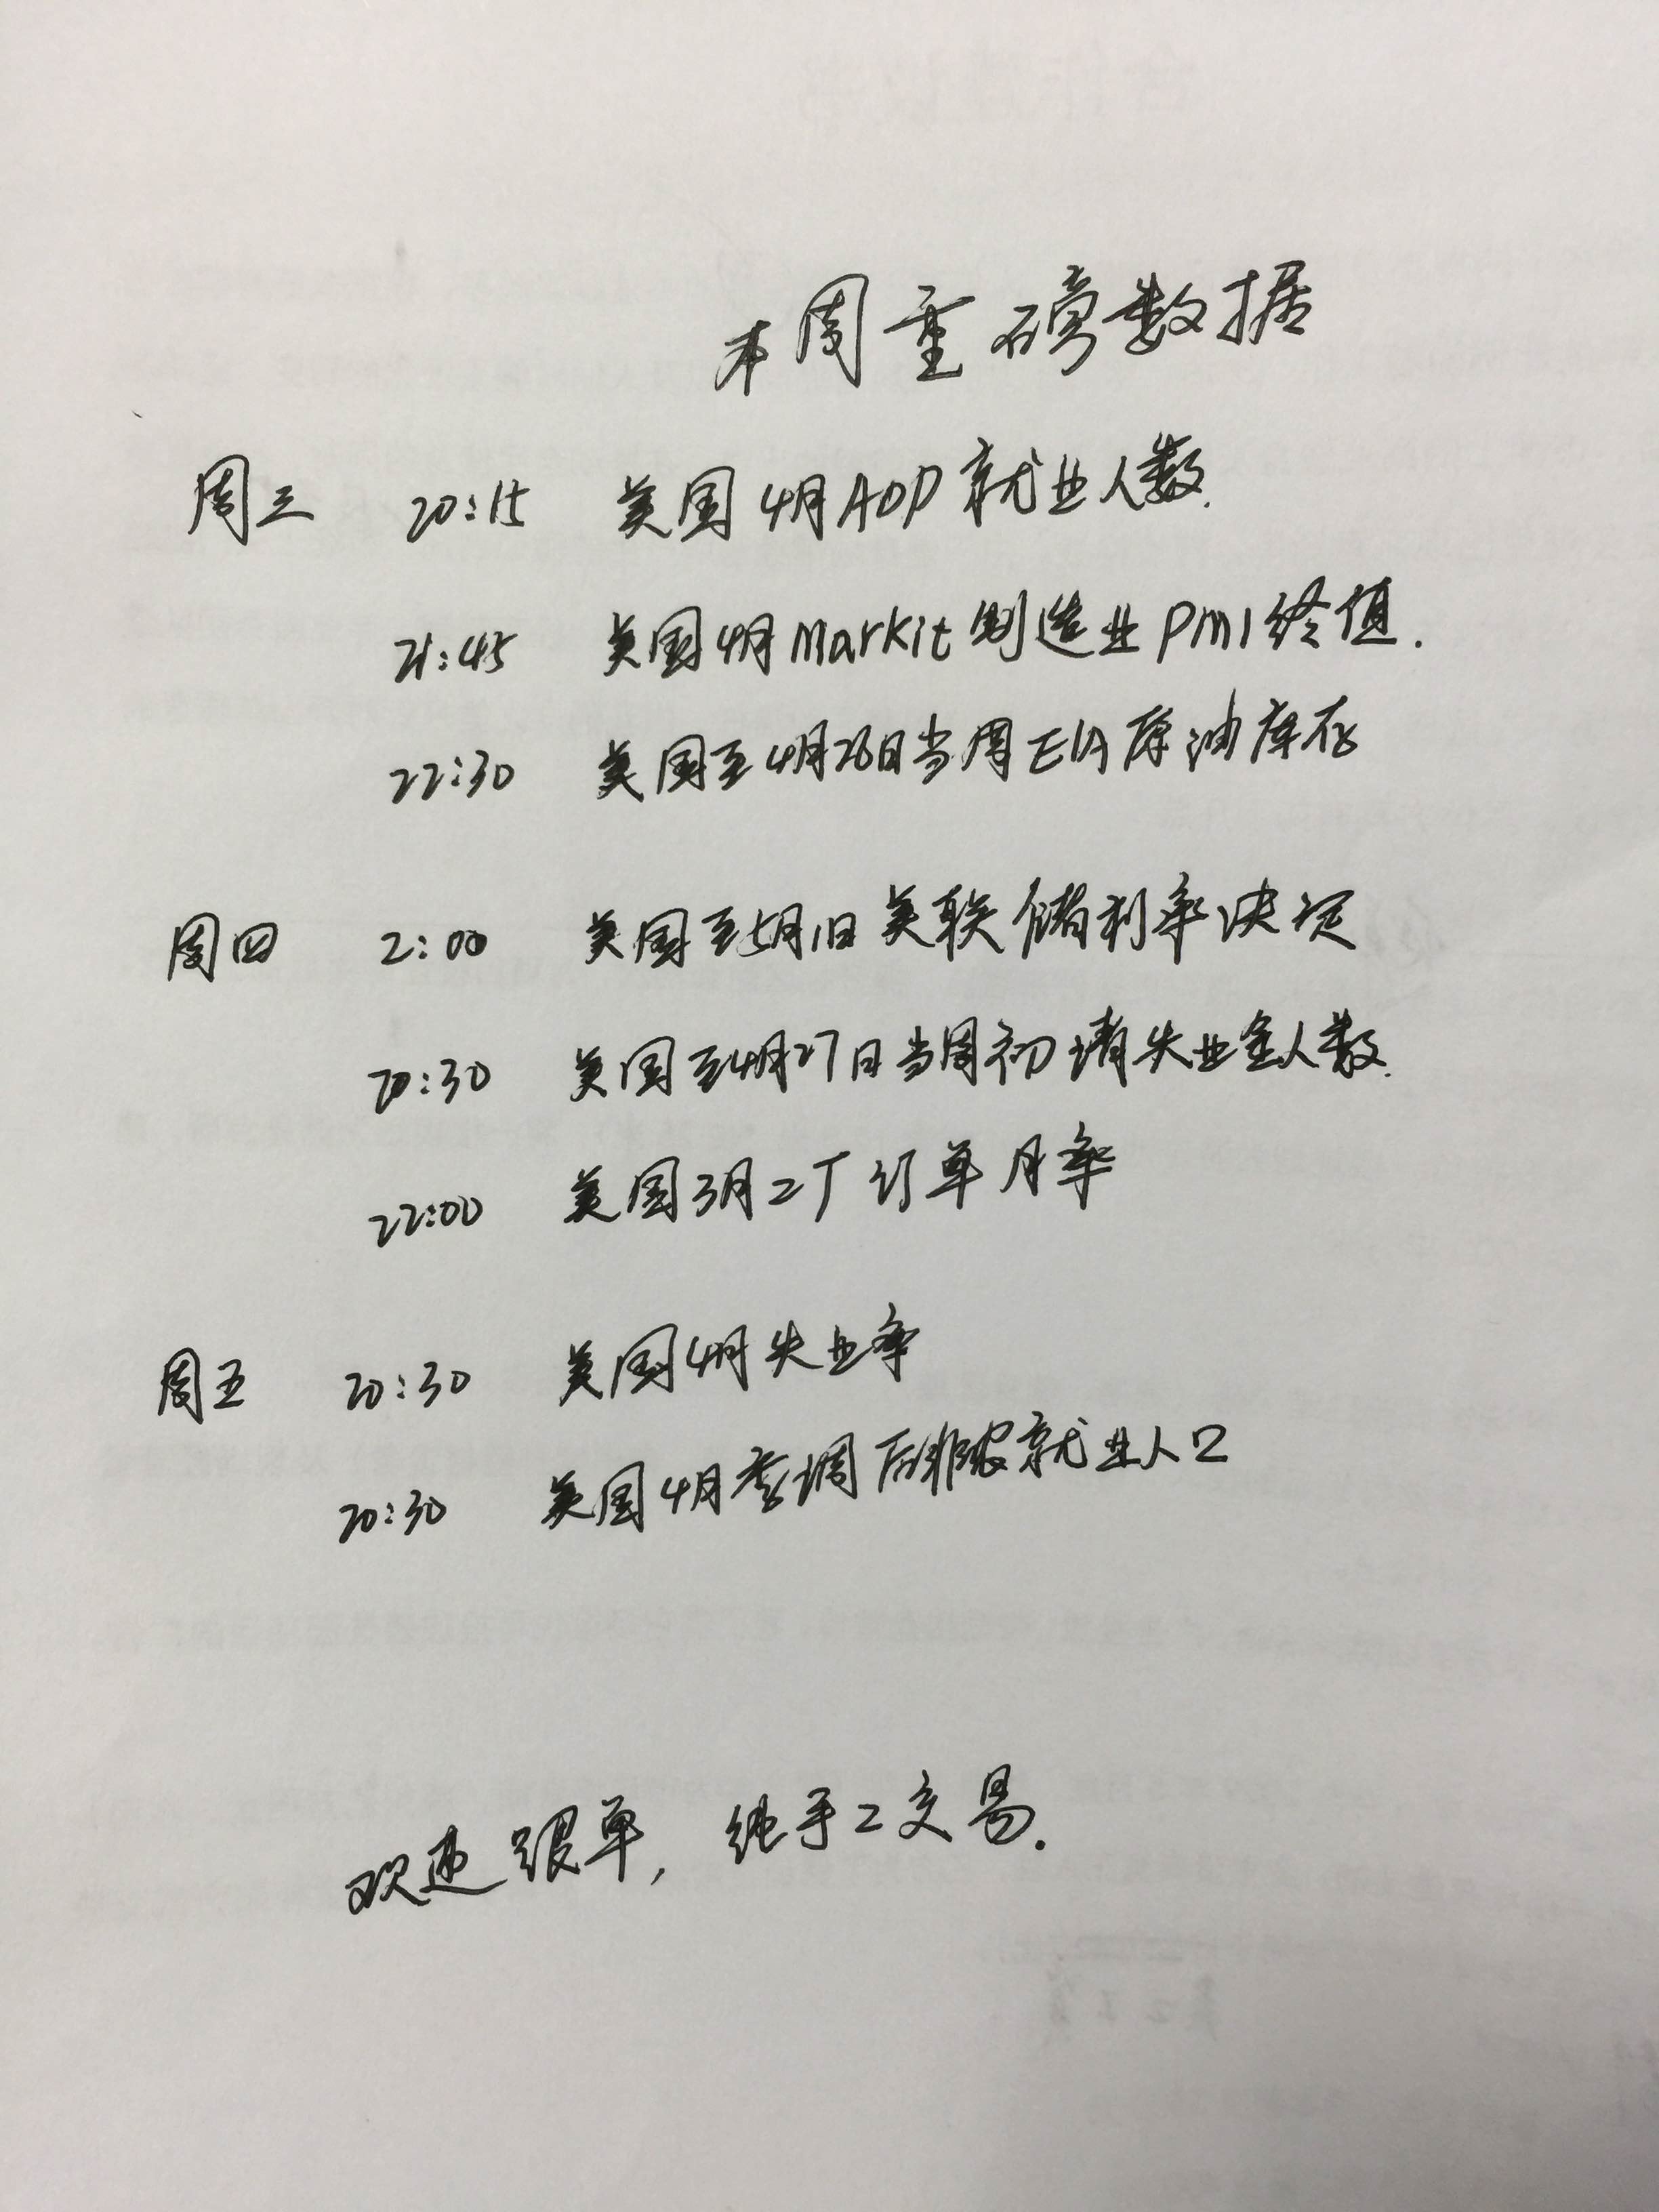 本周重磅数据
周三 20:15 美国4月ADP就业人数.
21:45 美国4月Markit制造业PMI终值.
22:30 美国至4月26日当周EIA原油库存
周四 2:00 美国至5月1日美联储利率决定
20:30 美国至4月27日当周初请失业金人数.
22:00 美国3月工厂订单月率
周五 20:30 美国4月失业率
20:30 美国4月季调后非农就业人口
欢迎跟单, 纯手工交易.